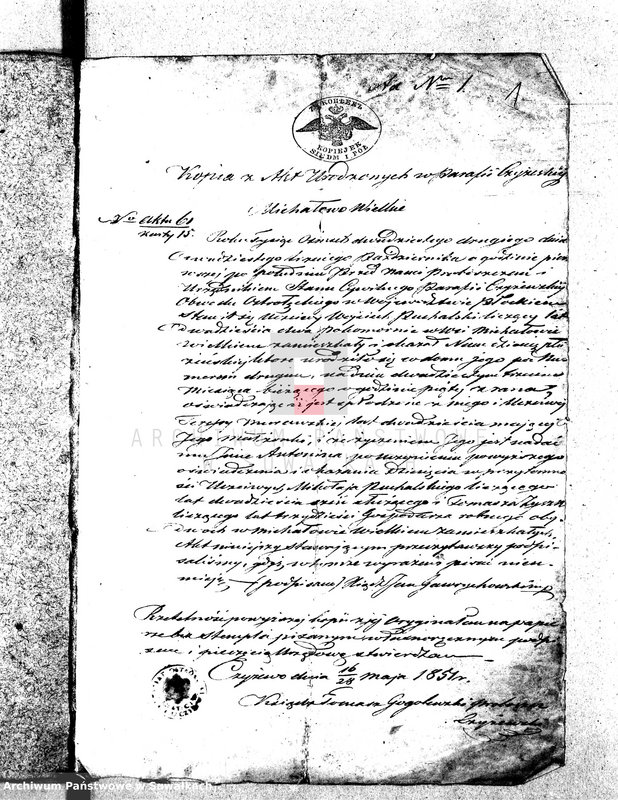 ad Nro 1. 1
KOPIEJEK
SIEDM I PÓŁ
Kopia z Akt Urodzonych w Parafii Czyżewskiej
Michałowo Wielkie
Nro aktu 61
karty 15.
Roku Tysiąc Ośmset dwudziestego drugiego dnia
dwudziestego trzeciego Października o godzinie pierw
wszej po południu Przed Nami Proboszczem i
Urzędnikiem Stanu Cywilnego Parafii Czyżewskiej
Obwodu Ostrołęckiego w Województwie Płockiem
Stawił się Uczciwy Wojciech Puchalski liczący lat
dwadzieścia dwa w Wsi Michałowie
wielkiem zamieszkały i okazał Nam dziecię płci
żeńskiej które urodziło się w domu jego pod Nu
merem drugim, na dniu dwudziestym trzecim
Miesiąca bieżącego o godzinie piątej z rana
oświadczając iż jest spłodzone z niego i Uczciwej
Teresy lat dwadzieścia mającej
Jego Małżonki, i że życzeniem Jego jest nadać
mu Imie Antonina po uczynieniu powyższego
oświadczenia i okazaniu Dziecięcia w przytomno
ści Uczciwych Mikołaja Puchalskiego liczącego
lat dwadzieścia i Tomasza
liczącego lat trzydzieści Gospodarza rolnego oby
dwóch w Michałowie Wielkiem zamieszkałych,
Akt niniejszy Stawającym przeczytawszy podpi
saliśmy, gdyż w Akcie wyrażeni pisać nieu-
mieją, (podpisano) Ksiądz Jan
Rzetelność powyższej kopii z jej Oryginałem na papie
rze bez stempla pisanym własnoręcznym podpi
sem i pieczęcią Urzędową stwierdzam
Czyżewo dnia 16/28 Maja 1851 r.
Ksiądz Tomasz Gogolewski proboszcz
Czyżewski
ARCHIWUM PAŃSTWOWE
W SUWAŁKACH
Archiwum Państwowe w Suwałkach